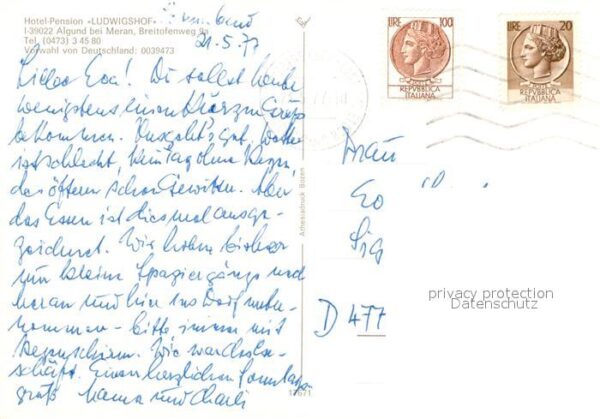 Hotel-Pension «LUDWIGSHOF»
I-39022 Algund bei Meran, Breitofenweg 9a
Tel. (0473) 3 45 80
Vorwahl von Deutschland: 0039473
21.5.77
Liebe Eva! Du sollst heute
wenigstens einen kurzen Gruß
bekommen. Uns geht's gut, Wetter
ist schlecht, kein Tag ohne Regen,
des öftern schon Gewitter. Aber
das Essen ist diesmal ausge-
zeichnet. Wir haben bisher
nur kleine Spaziergänge nach
Meran und hier ins Dorf unter-
nommen - bitte immer mit
Regenschirm. Wie war das Ge-
schäft. Einen herzlichen Sonntags-
gruß Mama und Charli
Athesiadruck Bozen
17671
LIRE 100
REPVBBLICA
ITALIANA
LIRE 20
REPVBBLICA
ITALIANA
Frau
D 477
privacy protection
Datenschutz